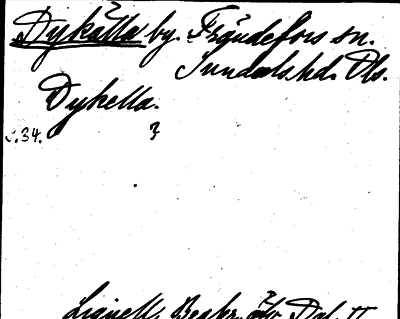 Dykälla by. Frändefors sn.
Sundals hd. Dls.
Dykella.
s. 34.
Lignell, Beskr. öfv. Dal. II